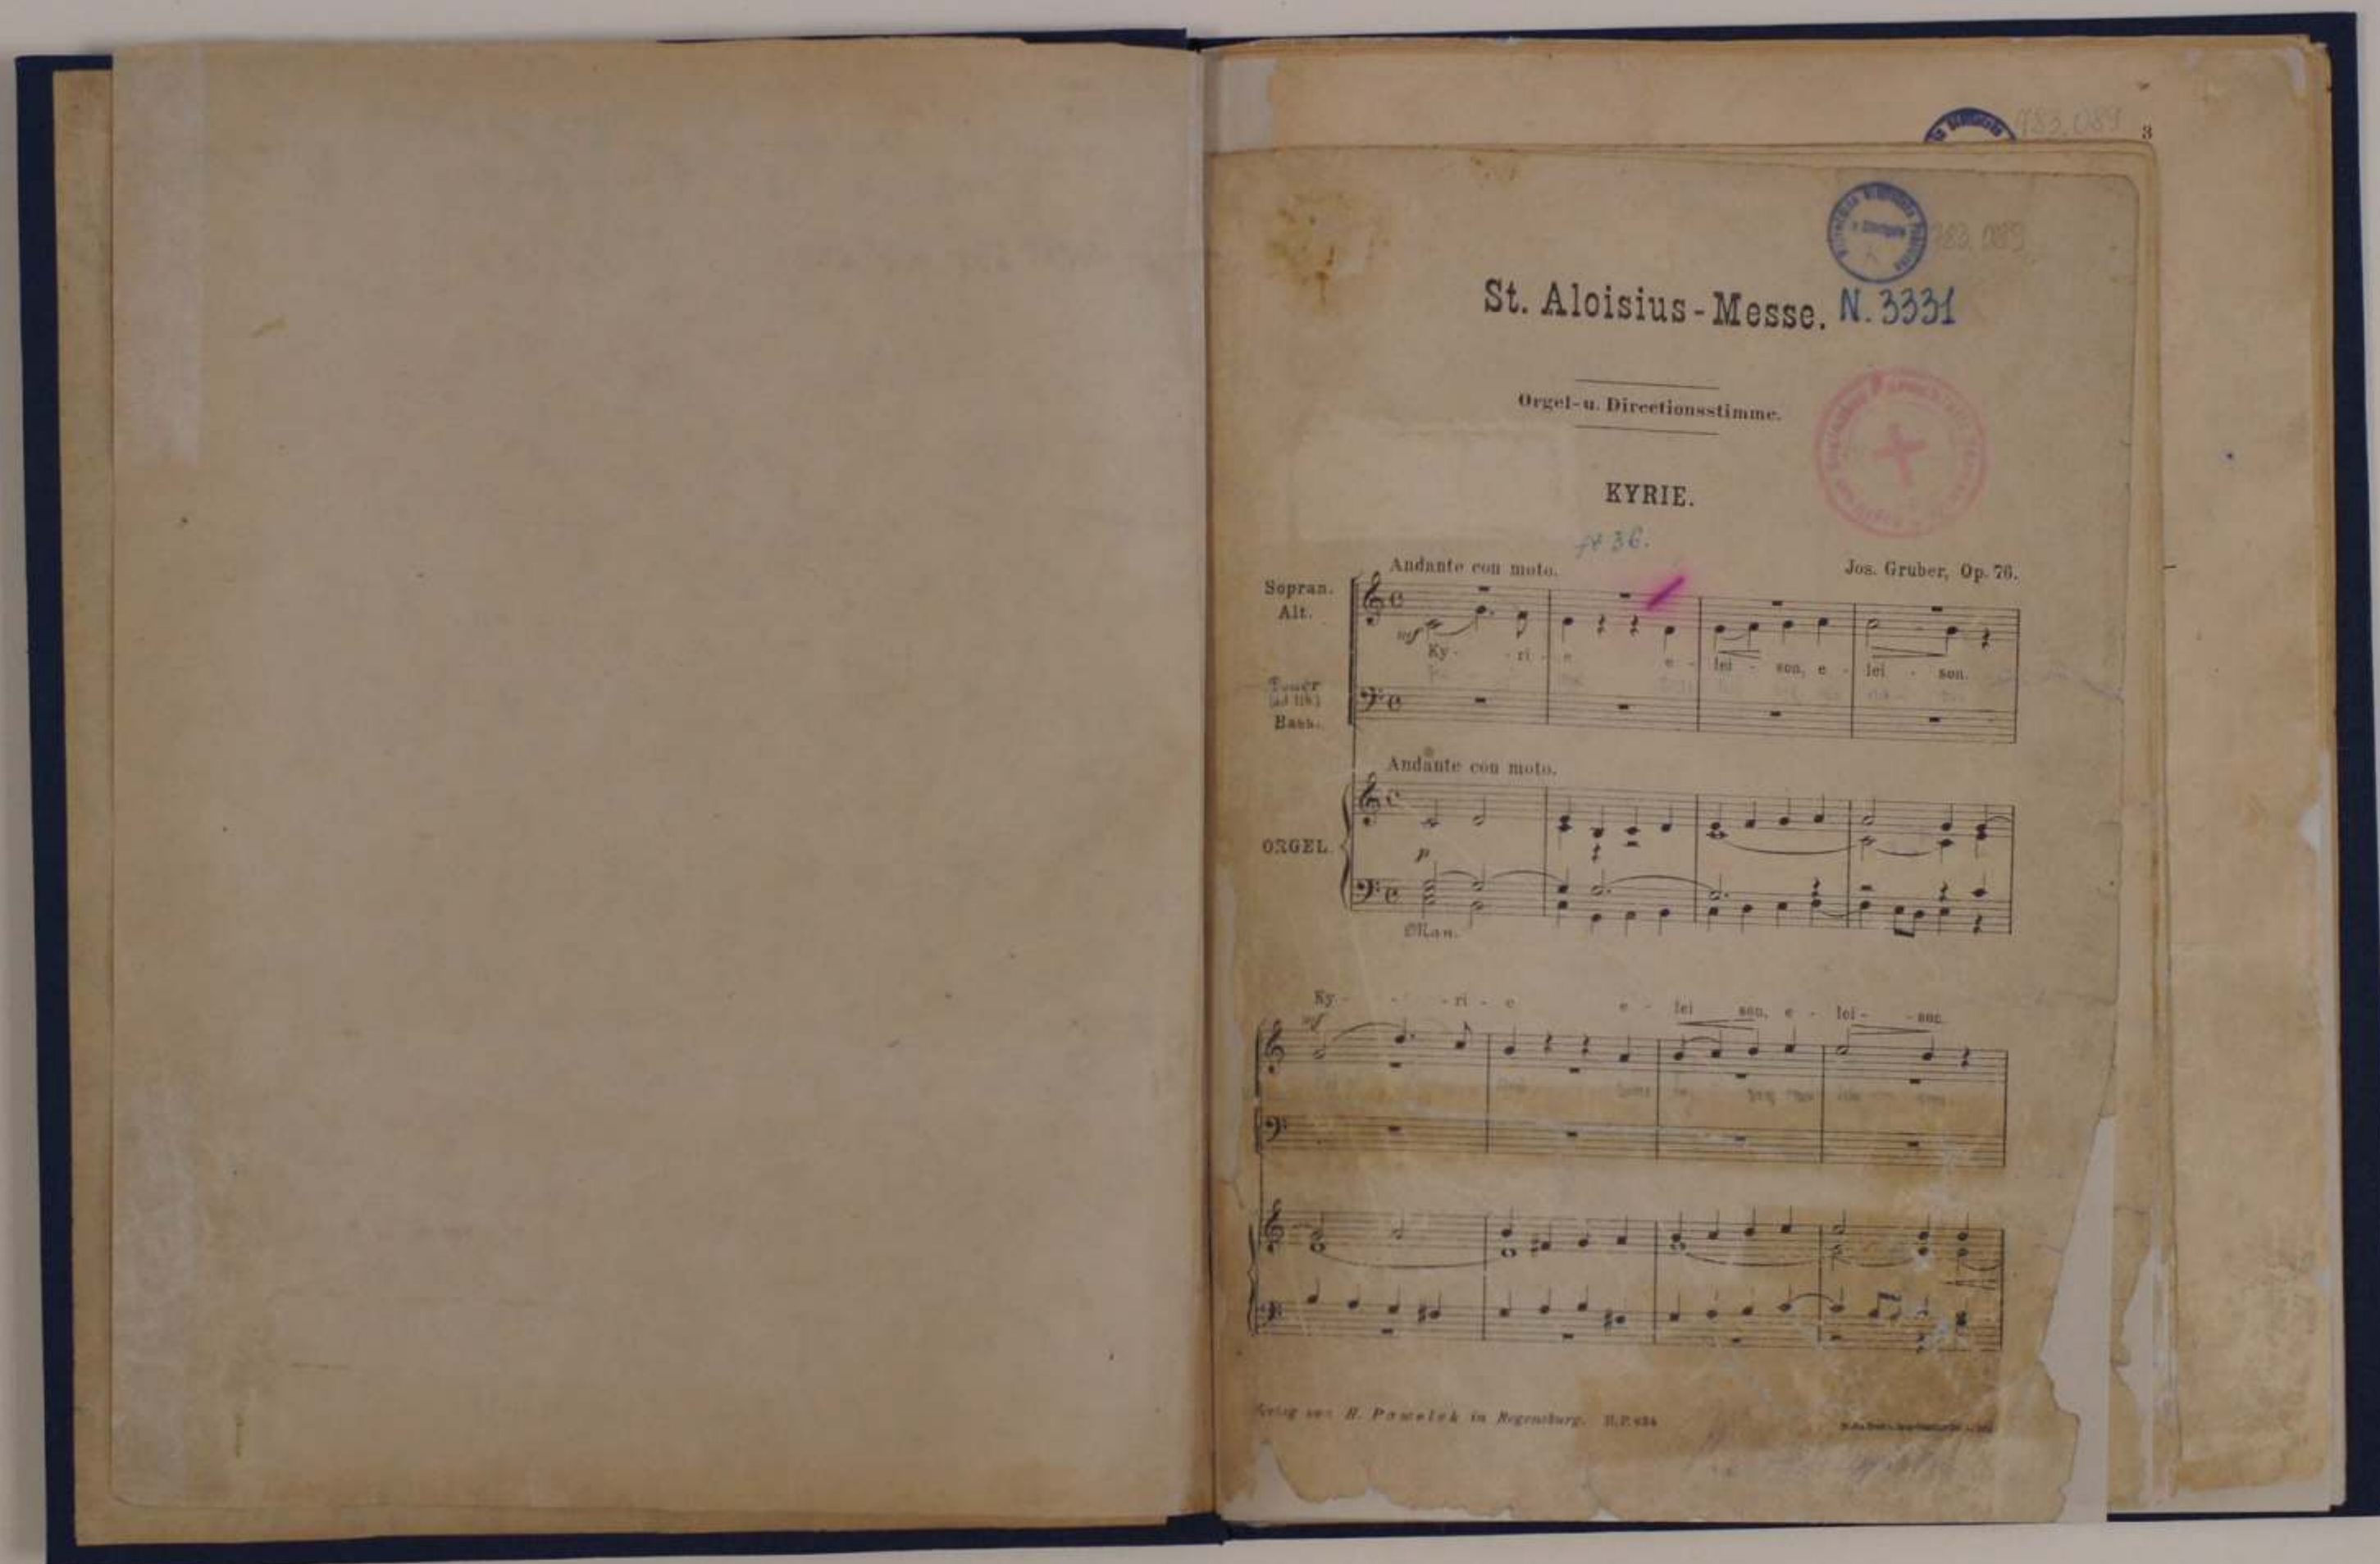 3
St. Aloisius-Messe. N. 3331
Orgel- u. Directionsstimme.
KYRIE.
36.
Andante con moto.
Jos. Gruber, Op. 76.
Sopran.
Alt.
mf
Ky - - ri - e e - lei - son, e - lei - son.
Tenor
(ad lib.)
Bass.
Andante con moto.
ORGEL.
p
Man.
Ky - - ri - e e - lei son, e - lei - - son.
mf
H. Pawelek in Regensburg.